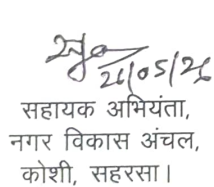 26/05/26
सहायक अभियंता,
नगर विकास अंचल,
कोशी, सहरसा।